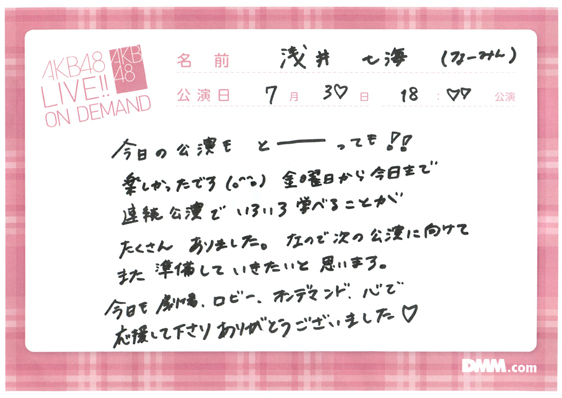 AKB48
LIVE!!
ON DEMAND
AKB
48
名 前 浅井 七海 (なーみん)
公演日 7 月 3♡ 日 18 : ♡♡ 公演
今日の公演も とーーっても!!
楽しかったです(o^^o) 金曜日から今日まで
連続公演で いろいろ学べることが
たくさん ありました。なので次の公演に向けて
また 準備して いきたいと 思います。
今日も 劇場、ロビー、オンデマンド、心で
応援して下さり ありがとうございました♡
DMM.com